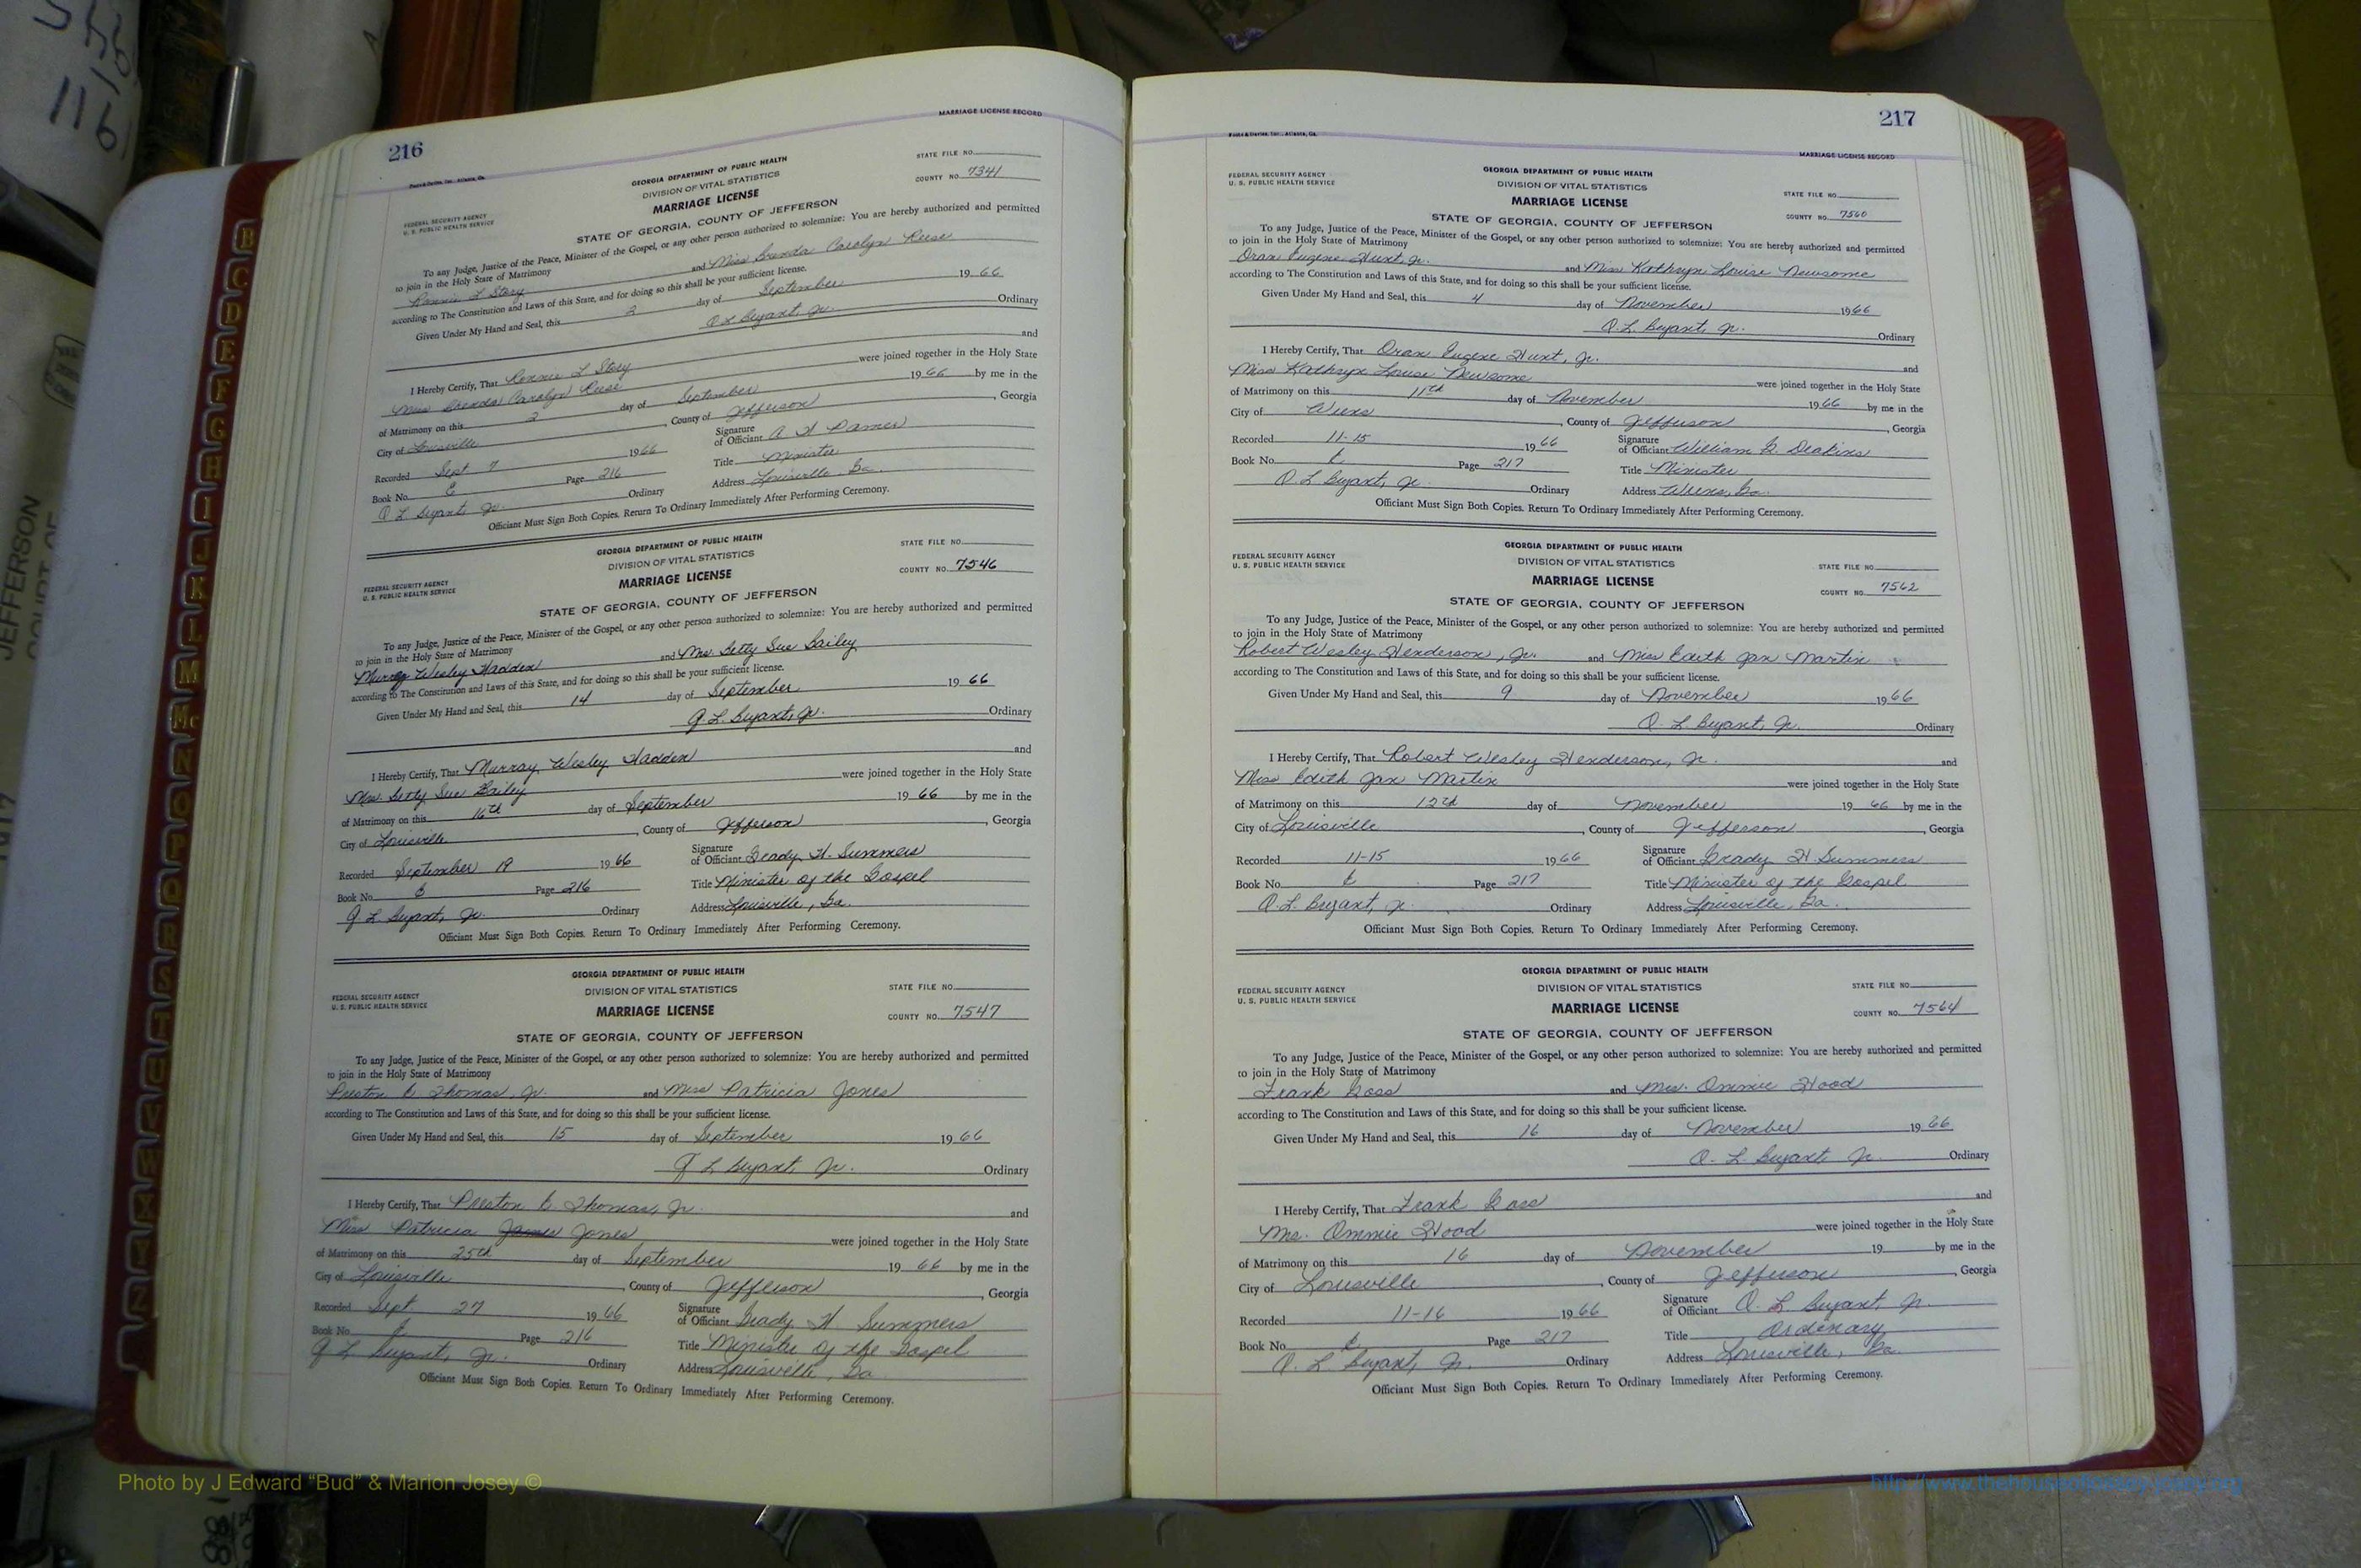 216
MARRIAGE LICENSE RECORD
Foote & Davies, Inc., Atlanta, Ga.
GEORGIA DEPARTMENT OF PUBLIC HEALTH
DIVISION OF VITAL STATISTICS
MARRIAGE LICENSE
STATE FILE NO.
COUNTY NO. 7341
FEDERAL SECURITY AGENCY
U. S. PUBLIC HEALTH SERVICE
STATE OF GEORGIA, COUNTY OF JEFFERSON
To any Judge, Justice of the Peace, Minister of the Gospel, or any other person authorized to solemnize: You are hereby authorized and permitted
to join in the Holy State of Matrimony
Ronnie L Story and Miss Brenda Carolyn Reese
according to The Constitution and Laws of this State, and for doing so this shall be your sufficient license.
Given Under My Hand and Seal, this 2 day of September 1966
Q L Bryant, Jr. Ordinary
I Hereby Certify, That Ronnie L Story and
Miss Brenda Carolyn Reese were joined together in the Holy State
of Matrimony on this 2 day of September 1966 by me in the
City of Louisville, County of Jefferson, Georgia
Recorded Sept 7 1966 Signature of Officiant A H
Book No. E Page 216 Title Minister
Q L Bryant, Jr. Ordinary Address Louisville, Ga.
Officiant Must Sign Both Copies. Return To Ordinary Immediately After Performing Ceremony.
GEORGIA DEPARTMENT OF PUBLIC HEALTH
DIVISION OF VITAL STATISTICS
MARRIAGE LICENSE
STATE FILE NO.
COUNTY NO. 7546
FEDERAL SECURITY AGENCY
U. S. PUBLIC HEALTH SERVICE
STATE OF GEORGIA, COUNTY OF JEFFERSON
To any Judge, Justice of the Peace, Minister of the Gospel, or any other person authorized to solemnize: You are hereby authorized and permitted
to join in the Holy State of Matrimony
Murray Wesley Hadden and Mrs Betty Sue Bailey
according to The Constitution and Laws of this State, and for doing so this shall be your sufficient license.
Given Under My Hand and Seal, this 14 day of September 1966
Q L. Bryant, Jr. Ordinary
I Hereby Certify, That Murray Wesley Hadden and
Mrs. Betty Sue Bailey were joined together in the Holy State
of Matrimony on this 16th day of September 1966 by me in the
City of Louisville, County of Jefferson, Georgia
Recorded September 19 1966 Signature of Officiant Grady H. Summers
Book No. E Page 216 Title Minister of the Gospel
Q L Bryant, Jr. Ordinary Address Louisville, Ga.
Officiant Must Sign Both Copies. Return To Ordinary Immediately After Performing Ceremony.
GEORGIA DEPARTMENT OF PUBLIC HEALTH
DIVISION OF VITAL STATISTICS
MARRIAGE LICENSE
STATE FILE NO.
COUNTY NO. 7547
FEDERAL SECURITY AGENCY
U. S. PUBLIC HEALTH SERVICE
STATE OF GEORGIA, COUNTY OF JEFFERSON
To any Judge, Justice of the Peace, Minister of the Gospel, or any other person authorized to solemnize: You are hereby authorized and permitted
to join in the Holy State of Matrimony
Preston E Thomas, Jr. and Miss Patricia Jones
according to The Constitution and Laws of this State, and for doing so this shall be your sufficient license.
Given Under My Hand and Seal, this 15 day of September 1966
Q L Bryant, Jr. Ordinary
I Hereby Certify, That Preston E Thomas, Jr. and
Miss Patricia James Jones were joined together in the Holy State
of Matrimony on this 25th day of September 1966 by me in the
City of Louisville, County of Jefferson, Georgia
Recorded Sept 27 1966 Signature of Officiant Grady H Summers
Book No. E Page 216 Title Minister of the Gospel
Q L Bryant, Jr. Ordinary Address Louisville, Ga
Officiant Must Sign Both Copies. Return To Ordinary Immediately After Performing Ceremony.
217
Foote & Davies, Inc., Atlanta, Ga.
MARRIAGE LICENSE RECORD
FEDERAL SECURITY AGENCY
U. S. PUBLIC HEALTH SERVICE
GEORGIA DEPARTMENT OF PUBLIC HEALTH
DIVISION OF VITAL STATISTICS
MARRIAGE LICENSE
STATE FILE NO.
COUNTY NO. 7560
STATE OF GEORGIA, COUNTY OF JEFFERSON
To any Judge, Justice of the Peace, Minister of the Gospel, or any other person authorized to solemnize: You are hereby authorized and permitted
to join in the Holy State of Matrimony
Oran Eugene Hunt, Jr. and Miss Kathryn Louise Newsome
according to The Constitution and Laws of this State, and for doing so this shall be your sufficient license.
Given Under My Hand and Seal, this 4 day of November 1966
Q. L. Bryant, Jr. Ordinary
I Hereby Certify, That Oran Eugene Hunt, Jr. and
Miss Kathryn Louise Newsome were joined together in the Holy State
of Matrimony on this 11th day of November 1966 by me in the
City of Wrens, County of Jefferson, Georgia
Recorded 11-15 1966 Signature of Officiant William G. Deakins
Book No. E Page 217 Title Minister
Q. L. Bryant, Jr. Ordinary Address Wrens, Ga.
Officiant Must Sign Both Copies. Return To Ordinary Immediately After Performing Ceremony.
FEDERAL SECURITY AGENCY
U. S. PUBLIC HEALTH SERVICE
GEORGIA DEPARTMENT OF PUBLIC HEALTH
DIVISION OF VITAL STATISTICS
MARRIAGE LICENSE
STATE FILE NO.
COUNTY NO. 7562
STATE OF GEORGIA, COUNTY OF JEFFERSON
To any Judge, Justice of the Peace, Minister of the Gospel, or any other person authorized to solemnize: You are hereby authorized and permitted
to join in the Holy State of Matrimony
Robert Wesley Henderson, Jr. and Miss Edith Jan Martin
according to The Constitution and Laws of this State, and for doing so this shall be your sufficient license.
Given Under My Hand and Seal, this 9 day of November 1966
Q. L. Bryant, Jr. Ordinary
I Hereby Certify, That Robert Wesley Henderson, Jr. and
Miss Edith Jan Martin were joined together in the Holy State
of Matrimony on this 12th day of November 1966 by me in the
City of Louisville, County of Jefferson, Georgia
Recorded 11-15 1966 Signature of Officiant Grady H. Summers
Book No. E Page 217 Title Minister of the Gospel
Q. L. Bryant, Jr. Ordinary Address Louisville, Ga.
Officiant Must Sign Both Copies. Return To Ordinary Immediately After Performing Ceremony.
FEDERAL SECURITY AGENCY
U. S. PUBLIC HEALTH SERVICE
GEORGIA DEPARTMENT OF PUBLIC HEALTH
DIVISION OF VITAL STATISTICS
MARRIAGE LICENSE
STATE FILE NO.
COUNTY NO. 7564
STATE OF GEORGIA, COUNTY OF JEFFERSON
To any Judge, Justice of the Peace, Minister of the Gospel, or any other person authorized to solemnize: You are hereby authorized and permitted
to join in the Holy State of Matrimony
Frank Goss and Mrs. Ommie Hood
according to The Constitution and Laws of this State, and for doing so this shall be your sufficient license.
Given Under My Hand and Seal, this 16 day of November 1966
Q. L. Bryant, Jr. Ordinary
I Hereby Certify, That Frank Goss and
Mrs. Ommie Hood were joined together in the Holy State
of Matrimony on this 16 day of November 19 by me in the
City of Louisville, County of Jefferson, Georgia
Recorded 11-16 1966 Signature of Officiant Q. L Bryant, Jr.
Book No. E Page 217 Title Ordinary
Q. L Bryant, Jr. Ordinary Address Louisville, Ga.
Officiant Must Sign Both Copies. Return To Ordinary Immediately After Performing Ceremony.
B
C
D
E
F
G
H
I
J
K
L
M
Mc
N
O
P
Q
R
S
T
U
V
W
X
Y
Z
JEFFERSON
COURT OF
Photo by J Edward “Bud” & Marion Josey ©